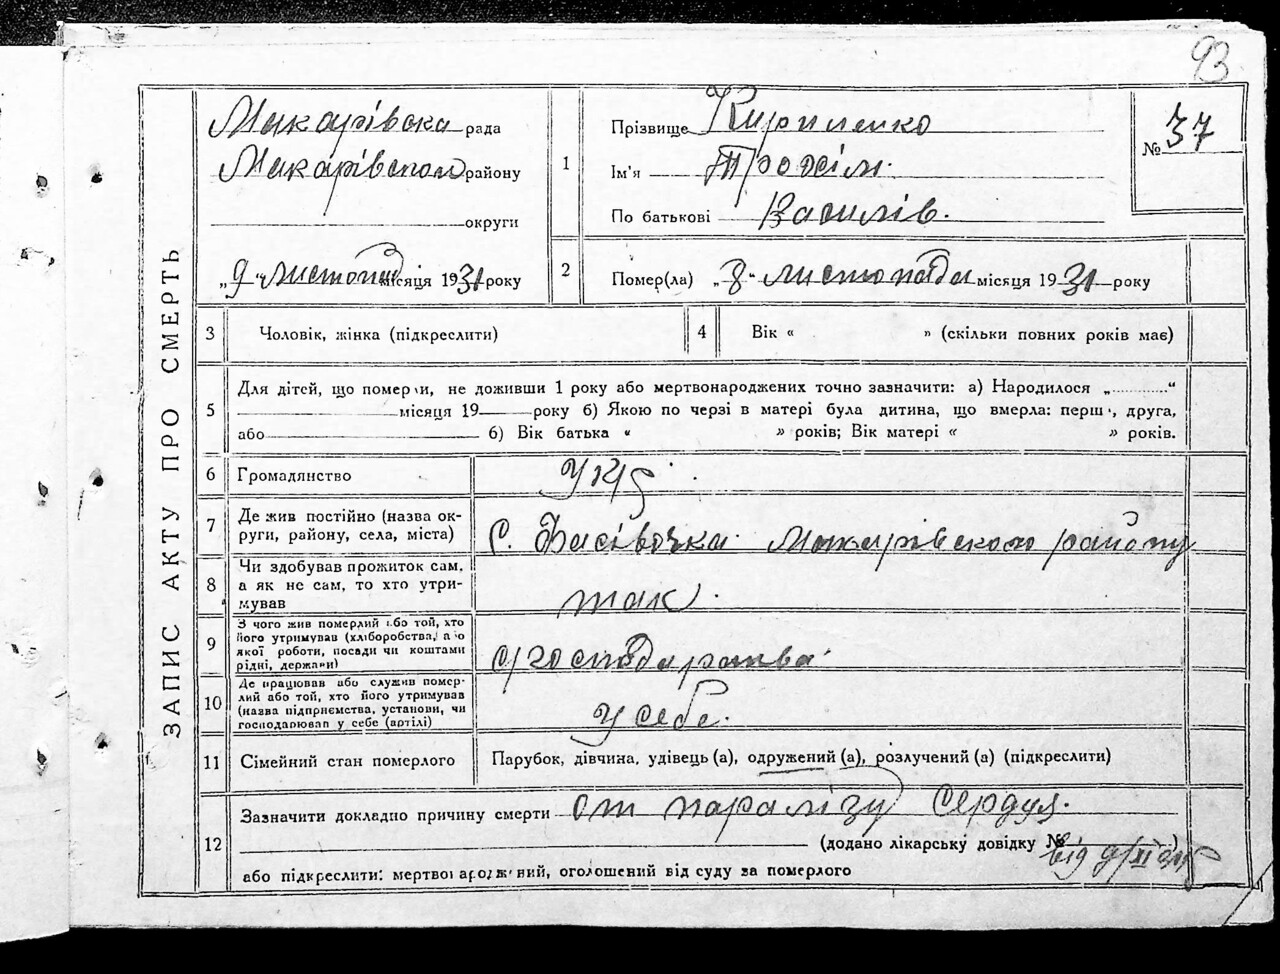 93
ЗАПИС АКТУ ПРО СМЕРТЬ
Макарівска рада
Макарівского району
округи
„9“ листопад місяця 1931 року
1
Прізвище Кириленко
Ім'я Трохім
По батькові Василів.
№ 37
2
Помер(ла) „8“ листопада місяця 1931 року
3
Чоловік, жінка (підкреслити)
4
Вік « » (скільки повних років має)
5
Для дітей, що померли, не доживши 1 року або мертвонароджених точно зазначити: а) Народилося „..........“
місяця 19 року б) Якою по черзі в матері була дитина, що вмерла: перш , друга,
або б) Вік батька « » років; Вік матері « » років.
6
Громадянство
Укр
7
Де жив постійно (назва ок-
руги, району, села, міста)
с. Фасівочка Макарівского району
8
Чи здобував прожиток сам,
а як не сам, то хто утри-
мував
так.
9
З чого жив померлий або той, хто
його утримував (хліборобства, а о
якої роботи, посади чи коштами
рідні, держави)
с/господарства
10
Де працював або служив помер-
лий або той, хто його утримував
(назва підприємства, установи, чи
господарював у себе (артілі)
у себе.
11
Сімейний стан померлого
Парубок, дівчина, удівець (а), одружений (а), розлучений (а) (підкреслити)
12
Зазначити докладно причину смерти от паралізу сердця.
(додано лікарську довідку №
від 9/XI 31р
або підкреслити: мертвонароджений, оголошений від суду за померлого